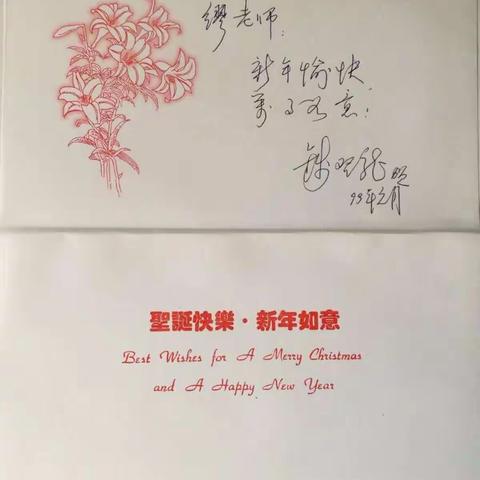 缪老师:
新年愉快
萬事如意!
年元月
聖誕快樂·新年如意
Best Wishes for A Merry Christmas
and A Happy New Year